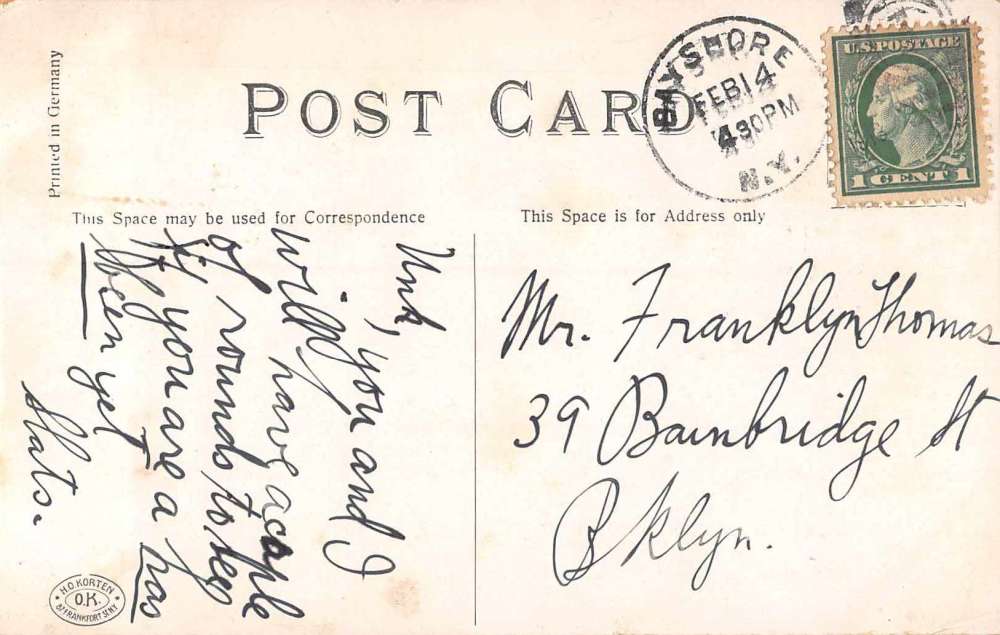 Printed in Germany
POST CARD
BAYSHORE
FEB 14
430PM
N.Y.
U.S. POSTAGE
1 CENT 1
This Space may be used for Correspondence
This Space is for Address only
Unk, you and I
will have a cople
of rounds to see
if you are a has
been yet
Slats.
Mr. Franklyn Thomas
39 Bainbridge St
Bklyn.
H.O. KORTEN
O.K.
FRANKFORT ST. N.Y.